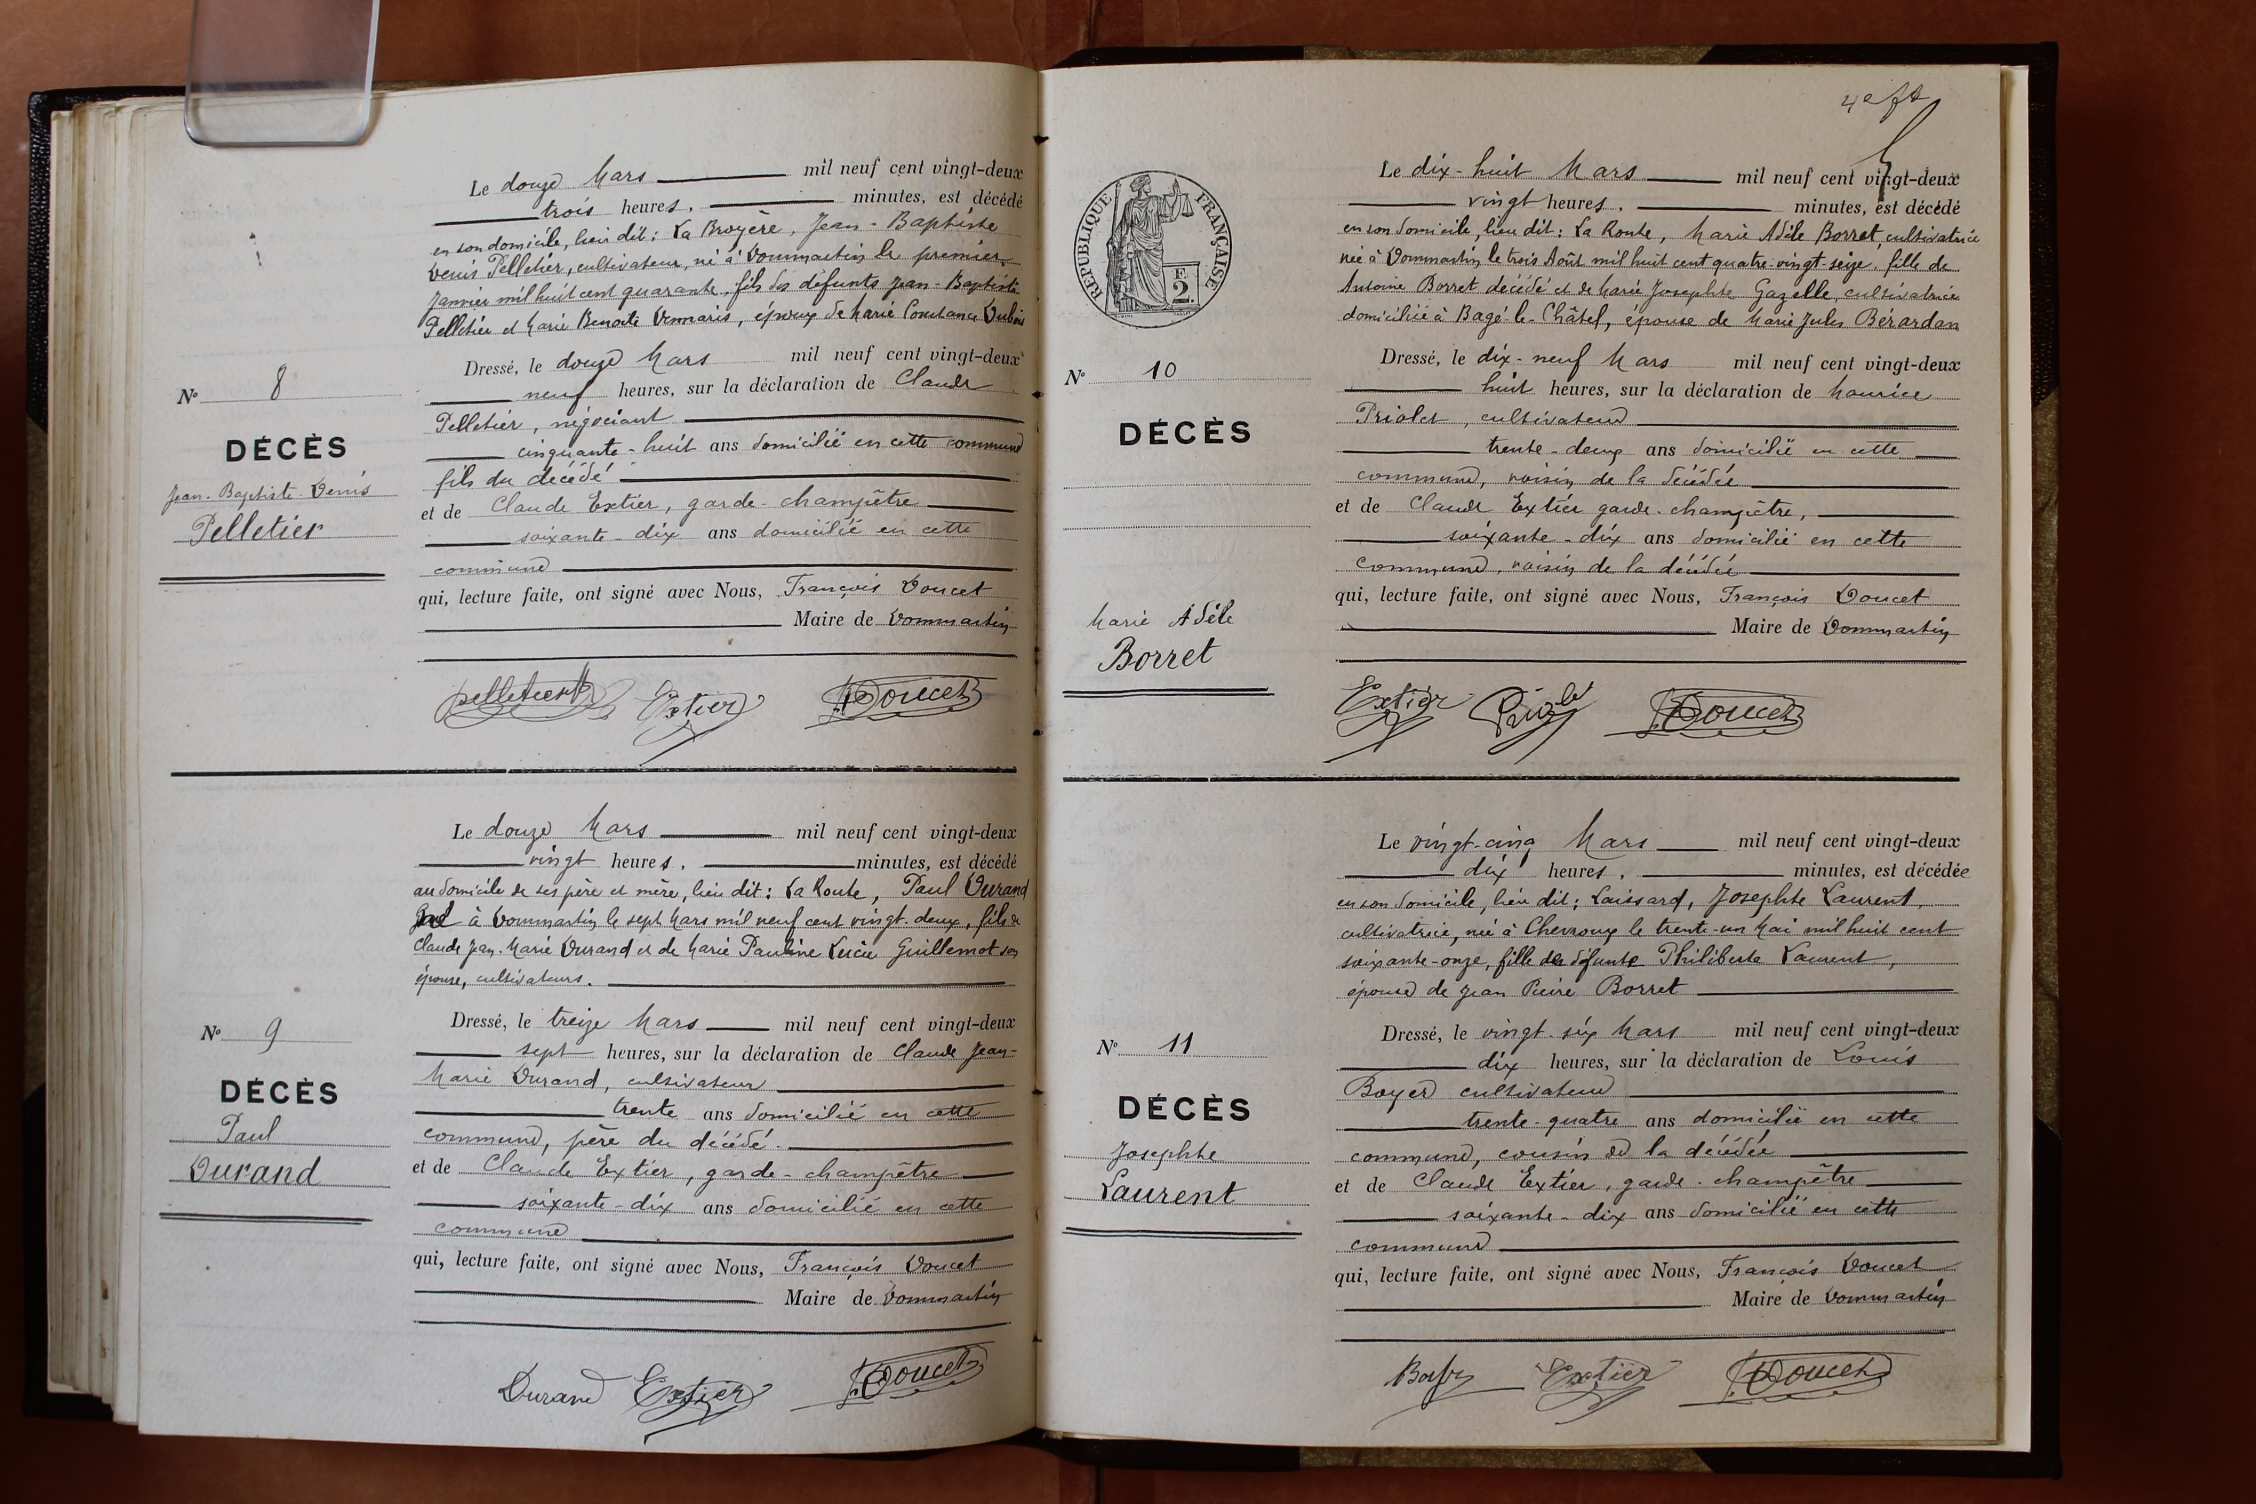 Le douze Mars mil neuf cent vingt-deux
trois heures, minutes, est décédé
en son domicile, lieu dit : La Broyère, Jean-Baptiste
Denis Pelletier, cultivateur, né à Dommartin le premier
Janvier mil huit cent quarante, fils des défunts Jean-Baptiste
Pelletier et Marie Benoite Demaris, époux de Marie Constance Dubois
Dressé, le douze Mars mil neuf cent vingt-deux
neuf heures, sur la déclaration de Claude
Pelletier, négociant
cinquante-huit ans domicilié en cette commune
fils du décédé
et de Claude Extier, garde-champêtre
soixante-dix ans domicilié en cette
commune
qui, lecture faite, ont signé avec Nous, François Doucet
Maire de Dommartin
N° 8
DÉCÈS
Jean-Baptiste-Denis
Pelletier
Pelletier Extier Doucet
Le douze Mars mil neuf cent vingt-deux
vingt heures, minutes, est décédé
au domicile de ses père et mère, lieu dit : La Route, Paul Durand
né à Dommartin le sept Mars mil neuf cent vingt-deux, fils de
Claude Jean-Marie Durand et de Marie Pauline Lucie Guillemot son
épouse, cultivateurs.
Dressé, le treize Mars mil neuf cent vingt-deux
sept heures, sur la déclaration de Claude Jean-
Marie Durand, cultivateur
trente ans domicilié en cette
commune, père du décédé.
et de Claude Extier, garde-champêtre
soixante-dix ans domicilié en cette
commune
qui, lecture faite, ont signé avec Nous, François Doucet
Maire de Dommartin
N° 9
DÉCÈS
Paul
Durand
Durand Extier Doucet
RÉPUBLIQUE FRANÇAISE
F
2
Le dix-huit Mars mil neuf cent vingt-deux
vingt heures, minutes, est décédé
en son domicile, lieu dit : La Route, Marie Adèle Borret, cultivatrice
née à Dommartin le trois Août mil huit cent quatre-vingt-seize, fille de
Antoine Borret décédé et de Marie Josephte Gazelle, cultivatrice
domiciliée à Bagé-le-Châtel, épouse de Marie Jules Bérardan
Dressé, le dix-neuf Mars mil neuf cent vingt-deux
huit heures, sur la déclaration de Maurice
Priolet, cultivateur
trente-deux ans domicilié en cette
commune, voisin de la décédée
et de Claude Extier garde-champêtre,
soixante-dix ans domicilié en cette
commune, voisin de la décédée
qui, lecture faite, ont signé avec Nous, François Doucet
Maire de Dommartin
N° 10
DÉCÈS
Marie Adèle
Borret
Extier Priolet Doucet
Le vingt-cinq Mars mil neuf cent vingt-deux
dix heures, minutes, est décédée
en son domicile, lieu dit : Laissard, Josephte Laurent,
cultivatrice, née à Chevroux le trente-un Mai mil huit cent
soixante-onze, fille de défunte Philiberte Laurent,
épouse de Jean Pierre Borret
Dressé, le vingt-six Mars mil neuf cent vingt-deux
dix heures, sur la déclaration de Louis
Boyer cultivateur
trente-quatre ans domicilié en cette
commune, cousin de la décédée
et de Claude Extier, garde-champêtre
soixante-dix ans domicilié en cette
commune
qui, lecture faite, ont signé avec Nous, François Doucet
Maire de Dommartin
N° 11
DÉCÈS
Josephte
Laurent
Boyer Extier Doucet